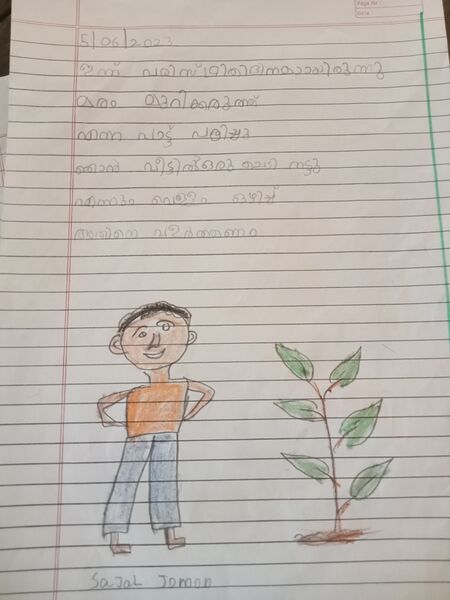 Page No
Date
5/06/2023
ഇന്ന് പരിസ്ഥിതിദിനമായിരുന്നു
മരം മുറിക്കരുത്
എന്ന പാട്ട് പഠിച്ചു
ഞാൻ വീട്ടിൽ ഒരു മാവ് നട്ടു
എന്നും വെള്ളം ഒഴിച്ച്
അതിനെ വളർത്തണം
Sajal Jomon